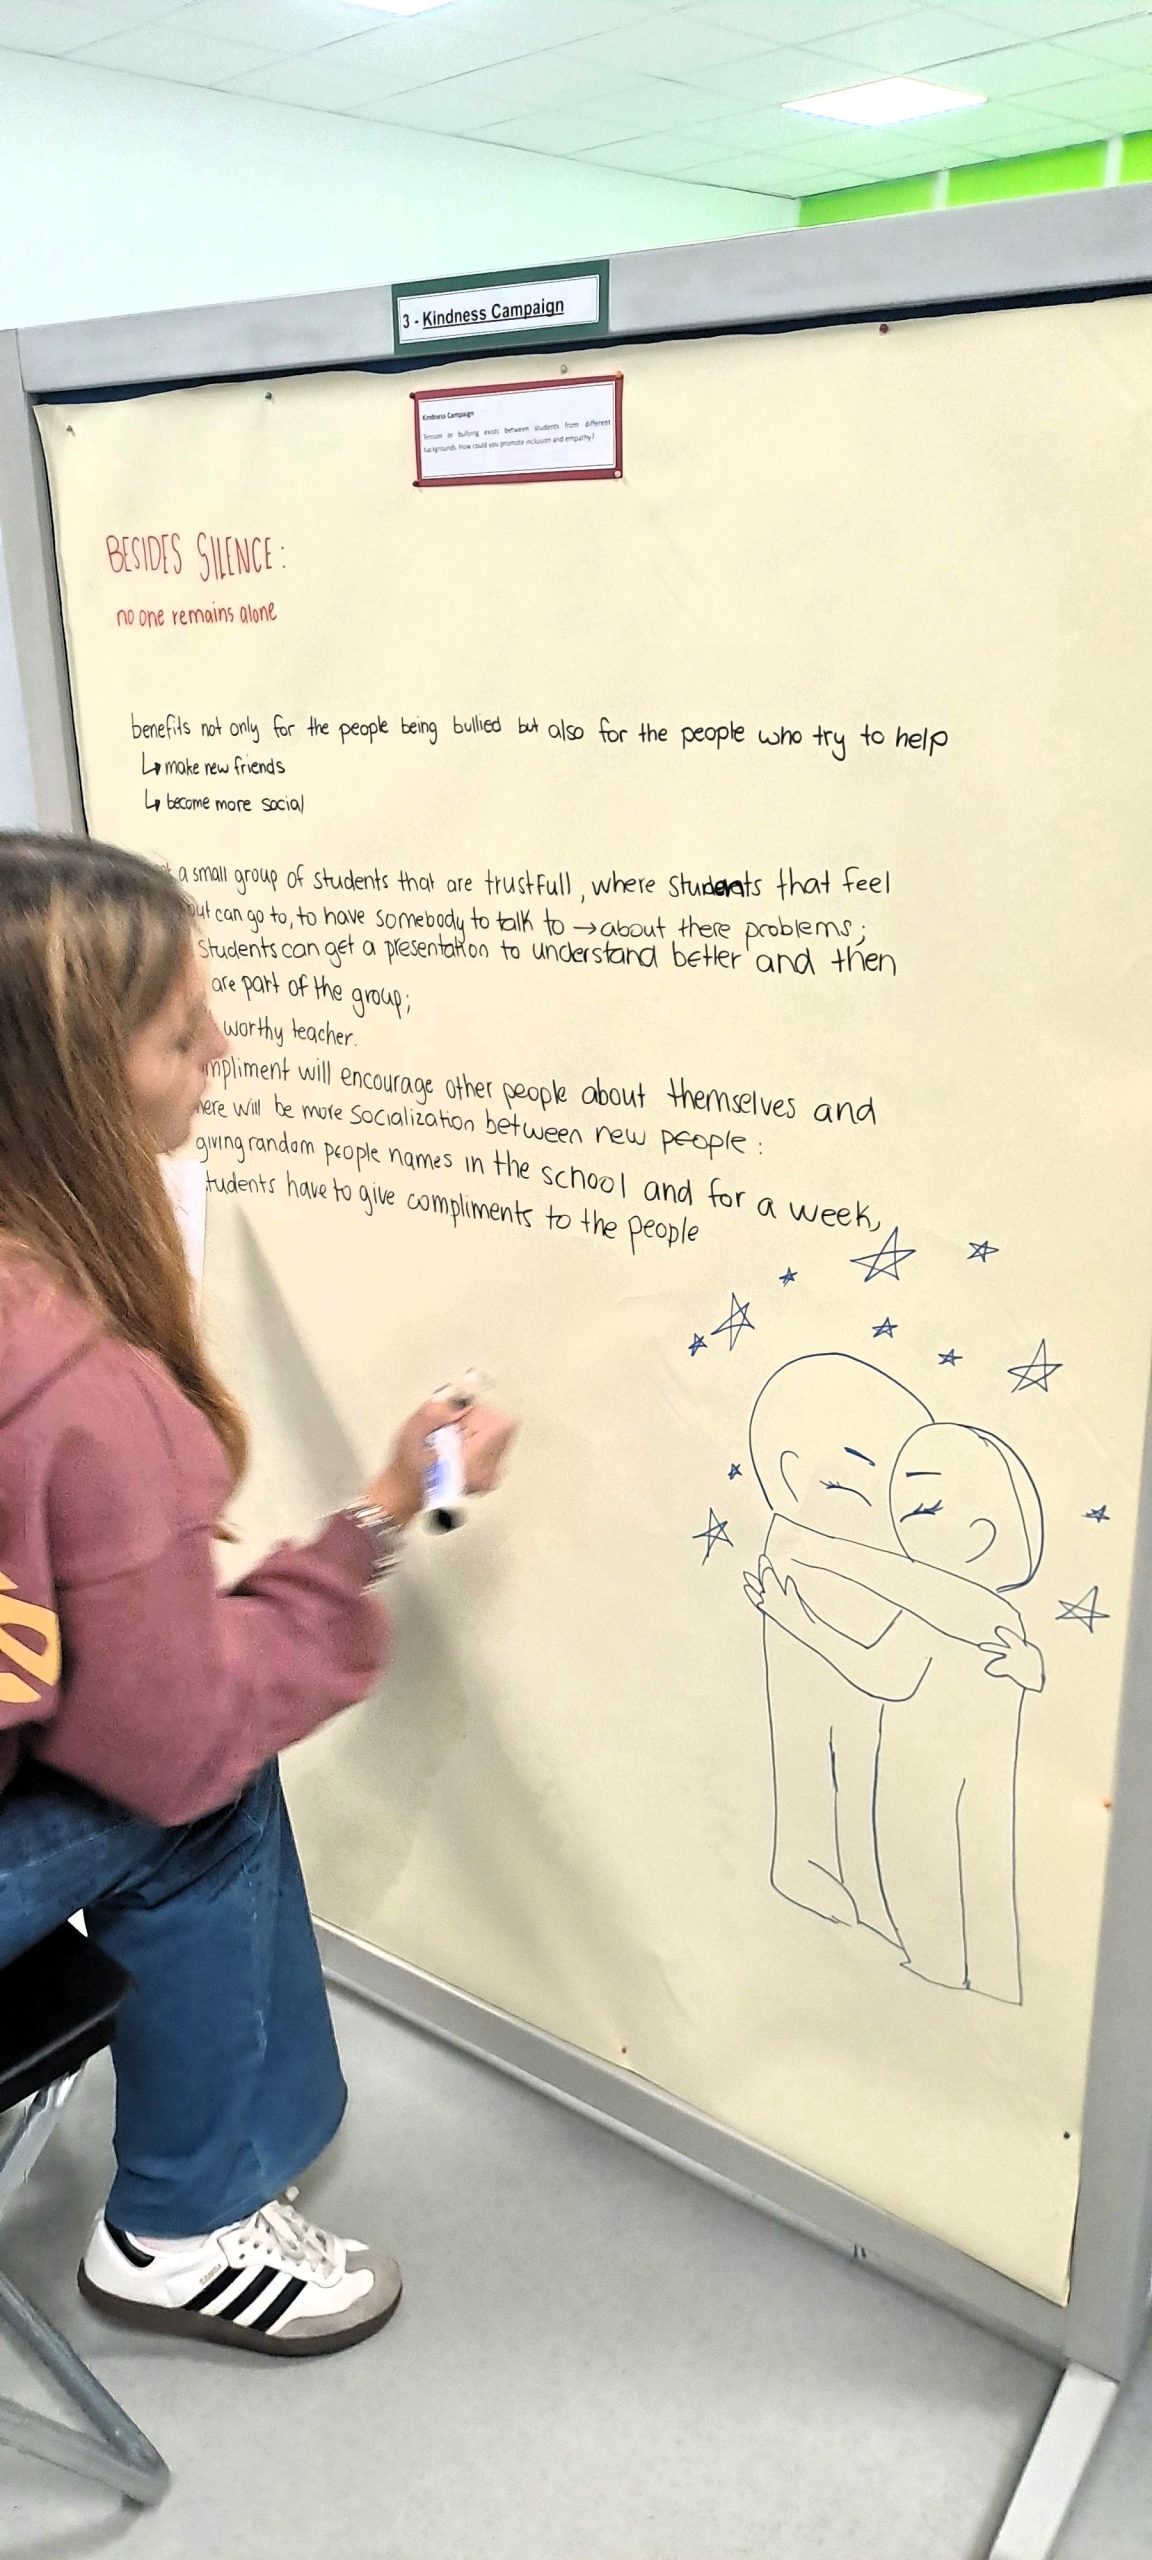 3 - Kindness Campaign
Kindness Campaign
Tension or bullying exists between students from different
backgrounds. How could you promote inclusion and empathy?
BESIDES SILENCE:
no one remains alone
benefits not only for the people being bullied but also for the people who try to help
↳ make new friends
↳ become more social
a small group of students that are trustfull, where students that feel
out can go to, to have somebody to talk to → about there problems;
students can get a presentation to understand better and then
are part of the group;
worthy teacher.
mpliment will encourage other people about themselves and
here will be more socialization between new people:
giving random people names in the school and for a week,
students have to give compliments to the people
SAMBA